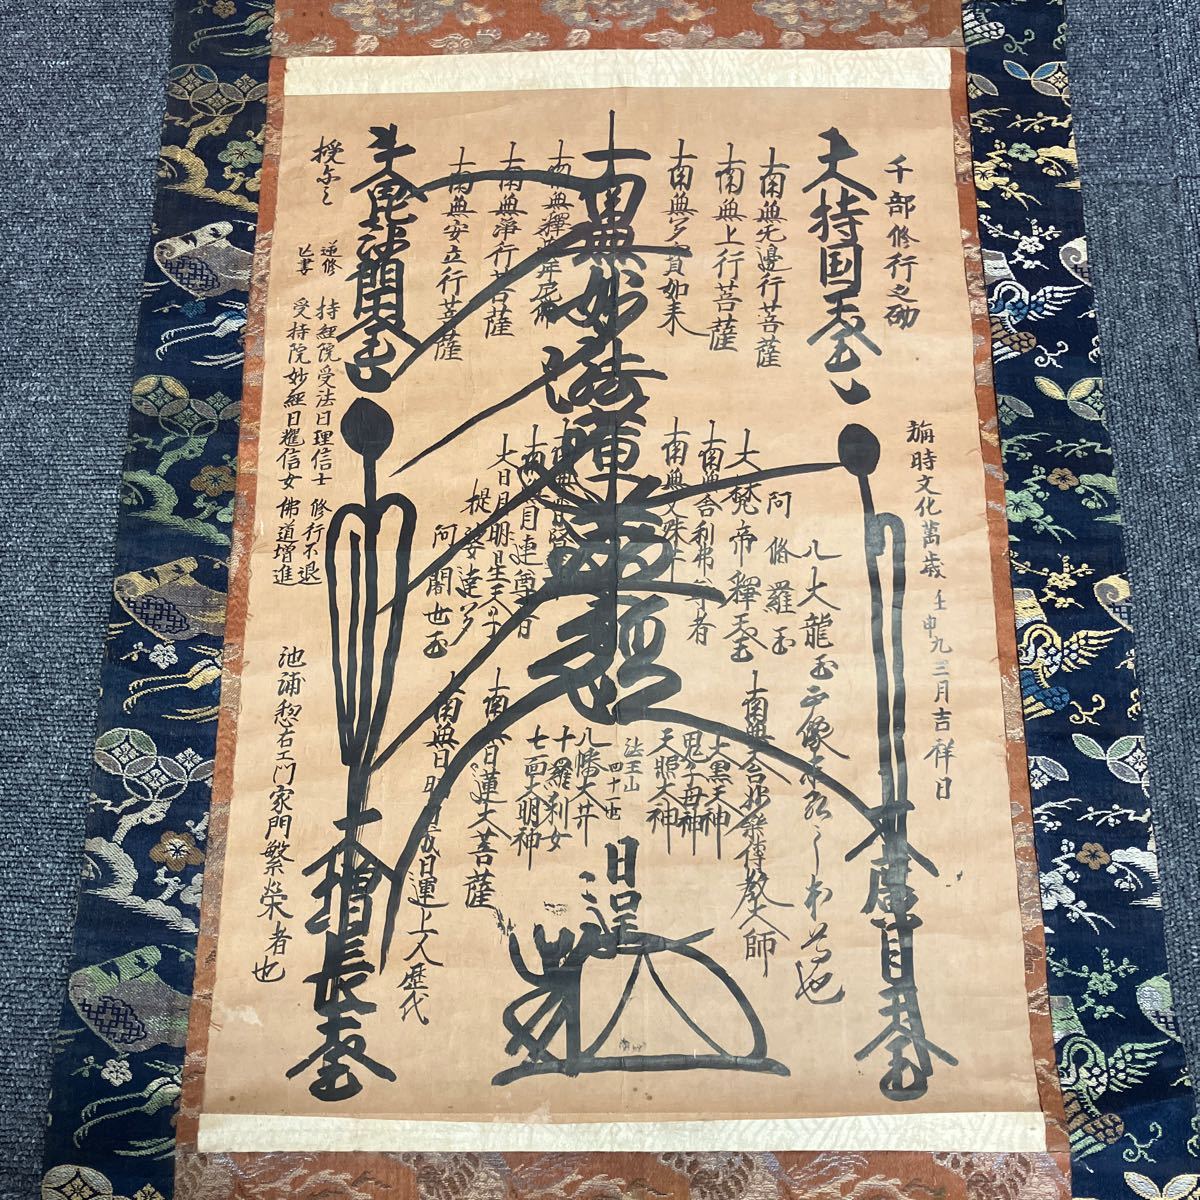 千部修行之砌
維時文化萬歳壬申九三月吉祥日
大持国天玉
大廣目天玉
八大龍玉
南無无邊行菩薩
南無上行菩薩
南無多宝如来
南無妙法蓮華経
南無釋迦牟尼佛
南無淨行菩薩
南無安立行菩薩
大毘沙門天玉
大梵帝釋天玉
阿修羅玉
南無舎利弗尊者
南無文殊
南無目連尊者
大日月明星天子
提婆達多
阿闍世玉
南無天台妙樂傳教大師
大黒天神
鬼子母神
天照大神
法王山
四十世
日
八幡大井
十羅刹女
七面大明神
南無日蓮大菩薩
上人歴代
大増長天玉
授与之
逆修
持経院受法日理信士 修行不退
受持院妙経日耀信女 佛道増進
池浦惣右エ門家門繁榮者也